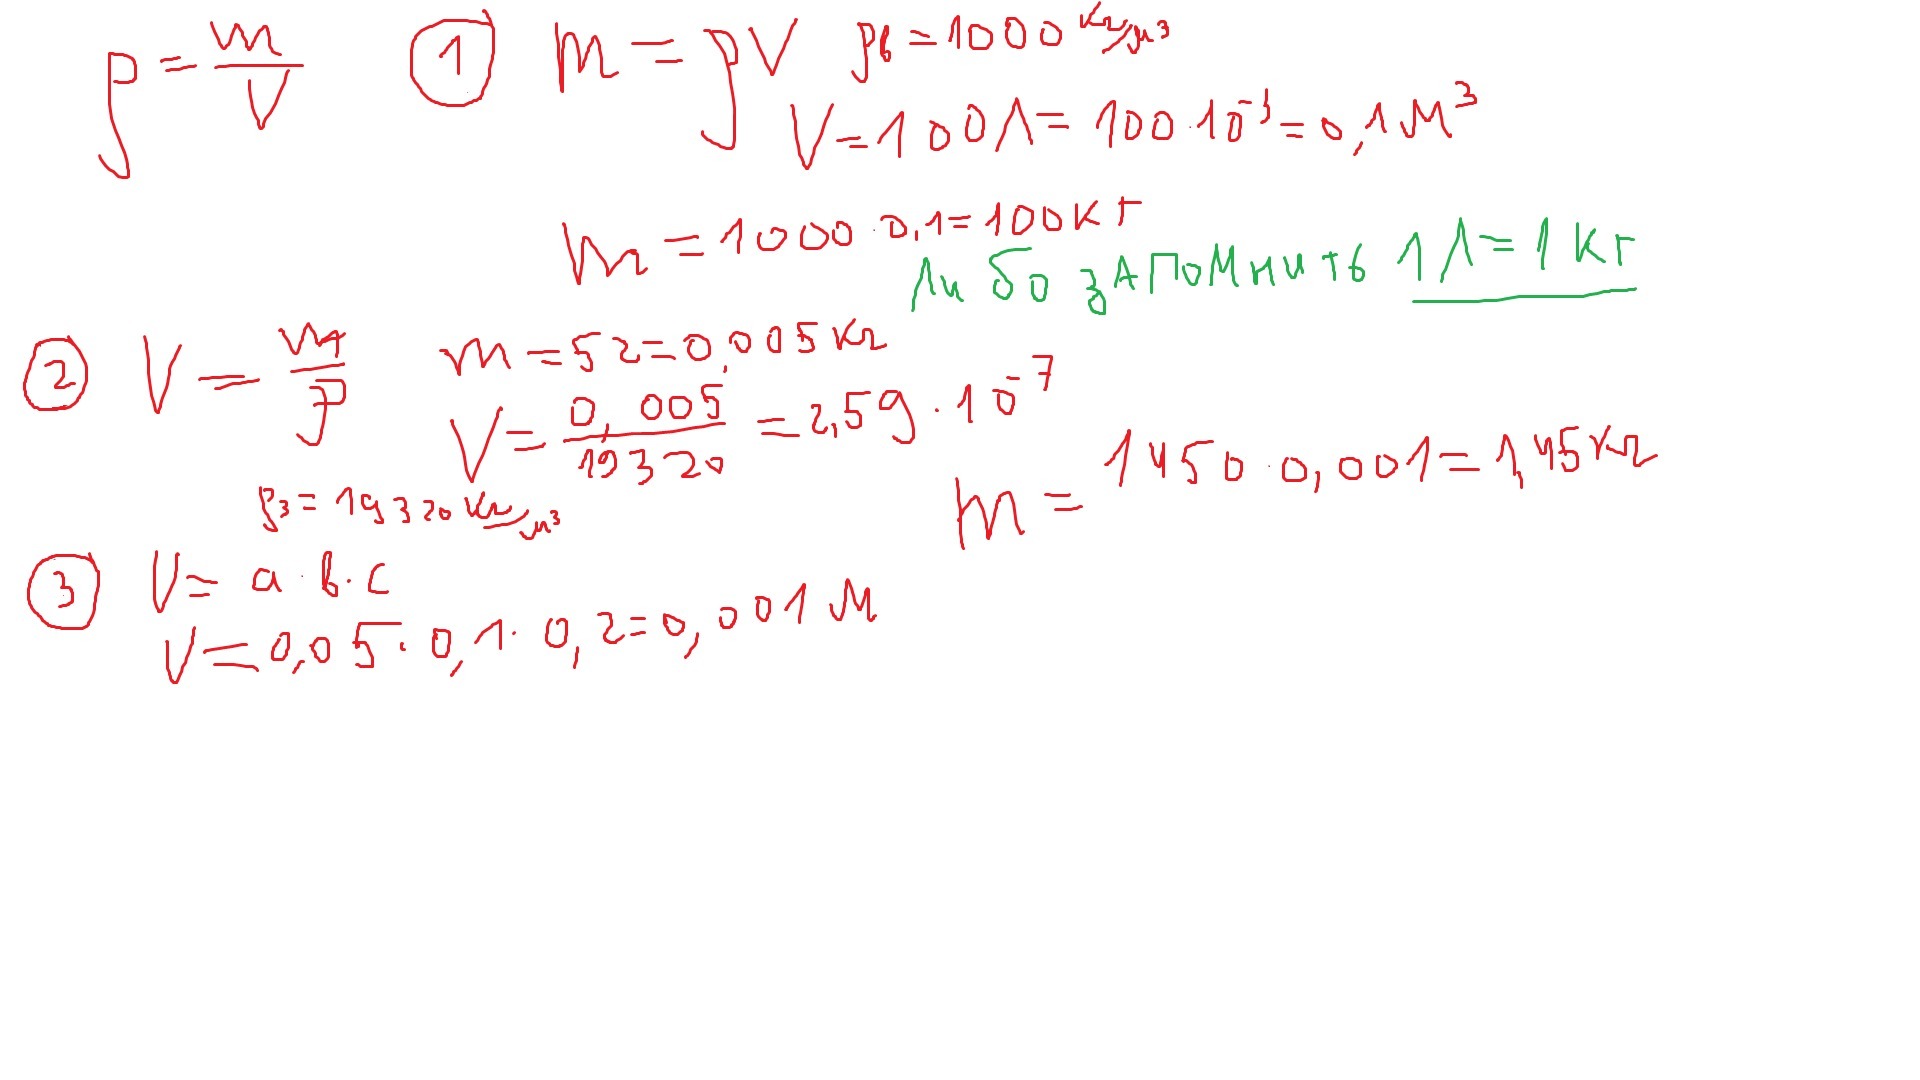 ρ = m/V ① m = ρV ρв = 1000 кг/м³
V = 100л = 100·10⁻³ = 0,1 м³
m = 1000·0,1 = 100кг
Либо запомнить 1л = 1кг
② V = m/ρ m = 5г = 0,005кг
V = 0,005/19320 = 2,59·10⁻⁷
ρз = 19320 кг/м³
m = 1450·0,001 = 1,45кг
③ V = a·b·c
V = 0,05·0,1·0,2 = 0,001м